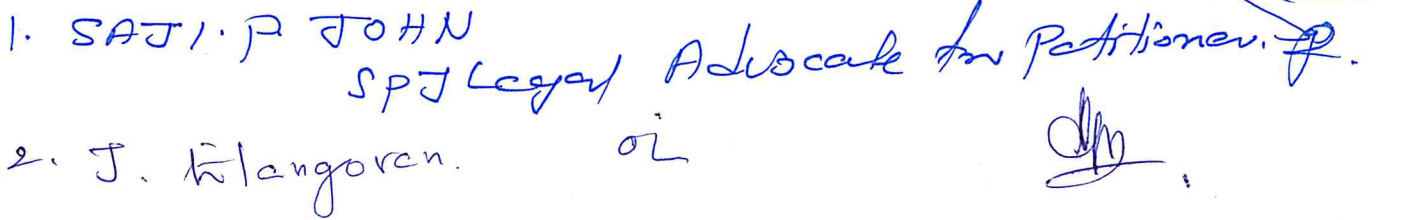 1. SAJI. P JOHN
SPJ Legal Advocate for Petitioner.
2. J. Elangovan.